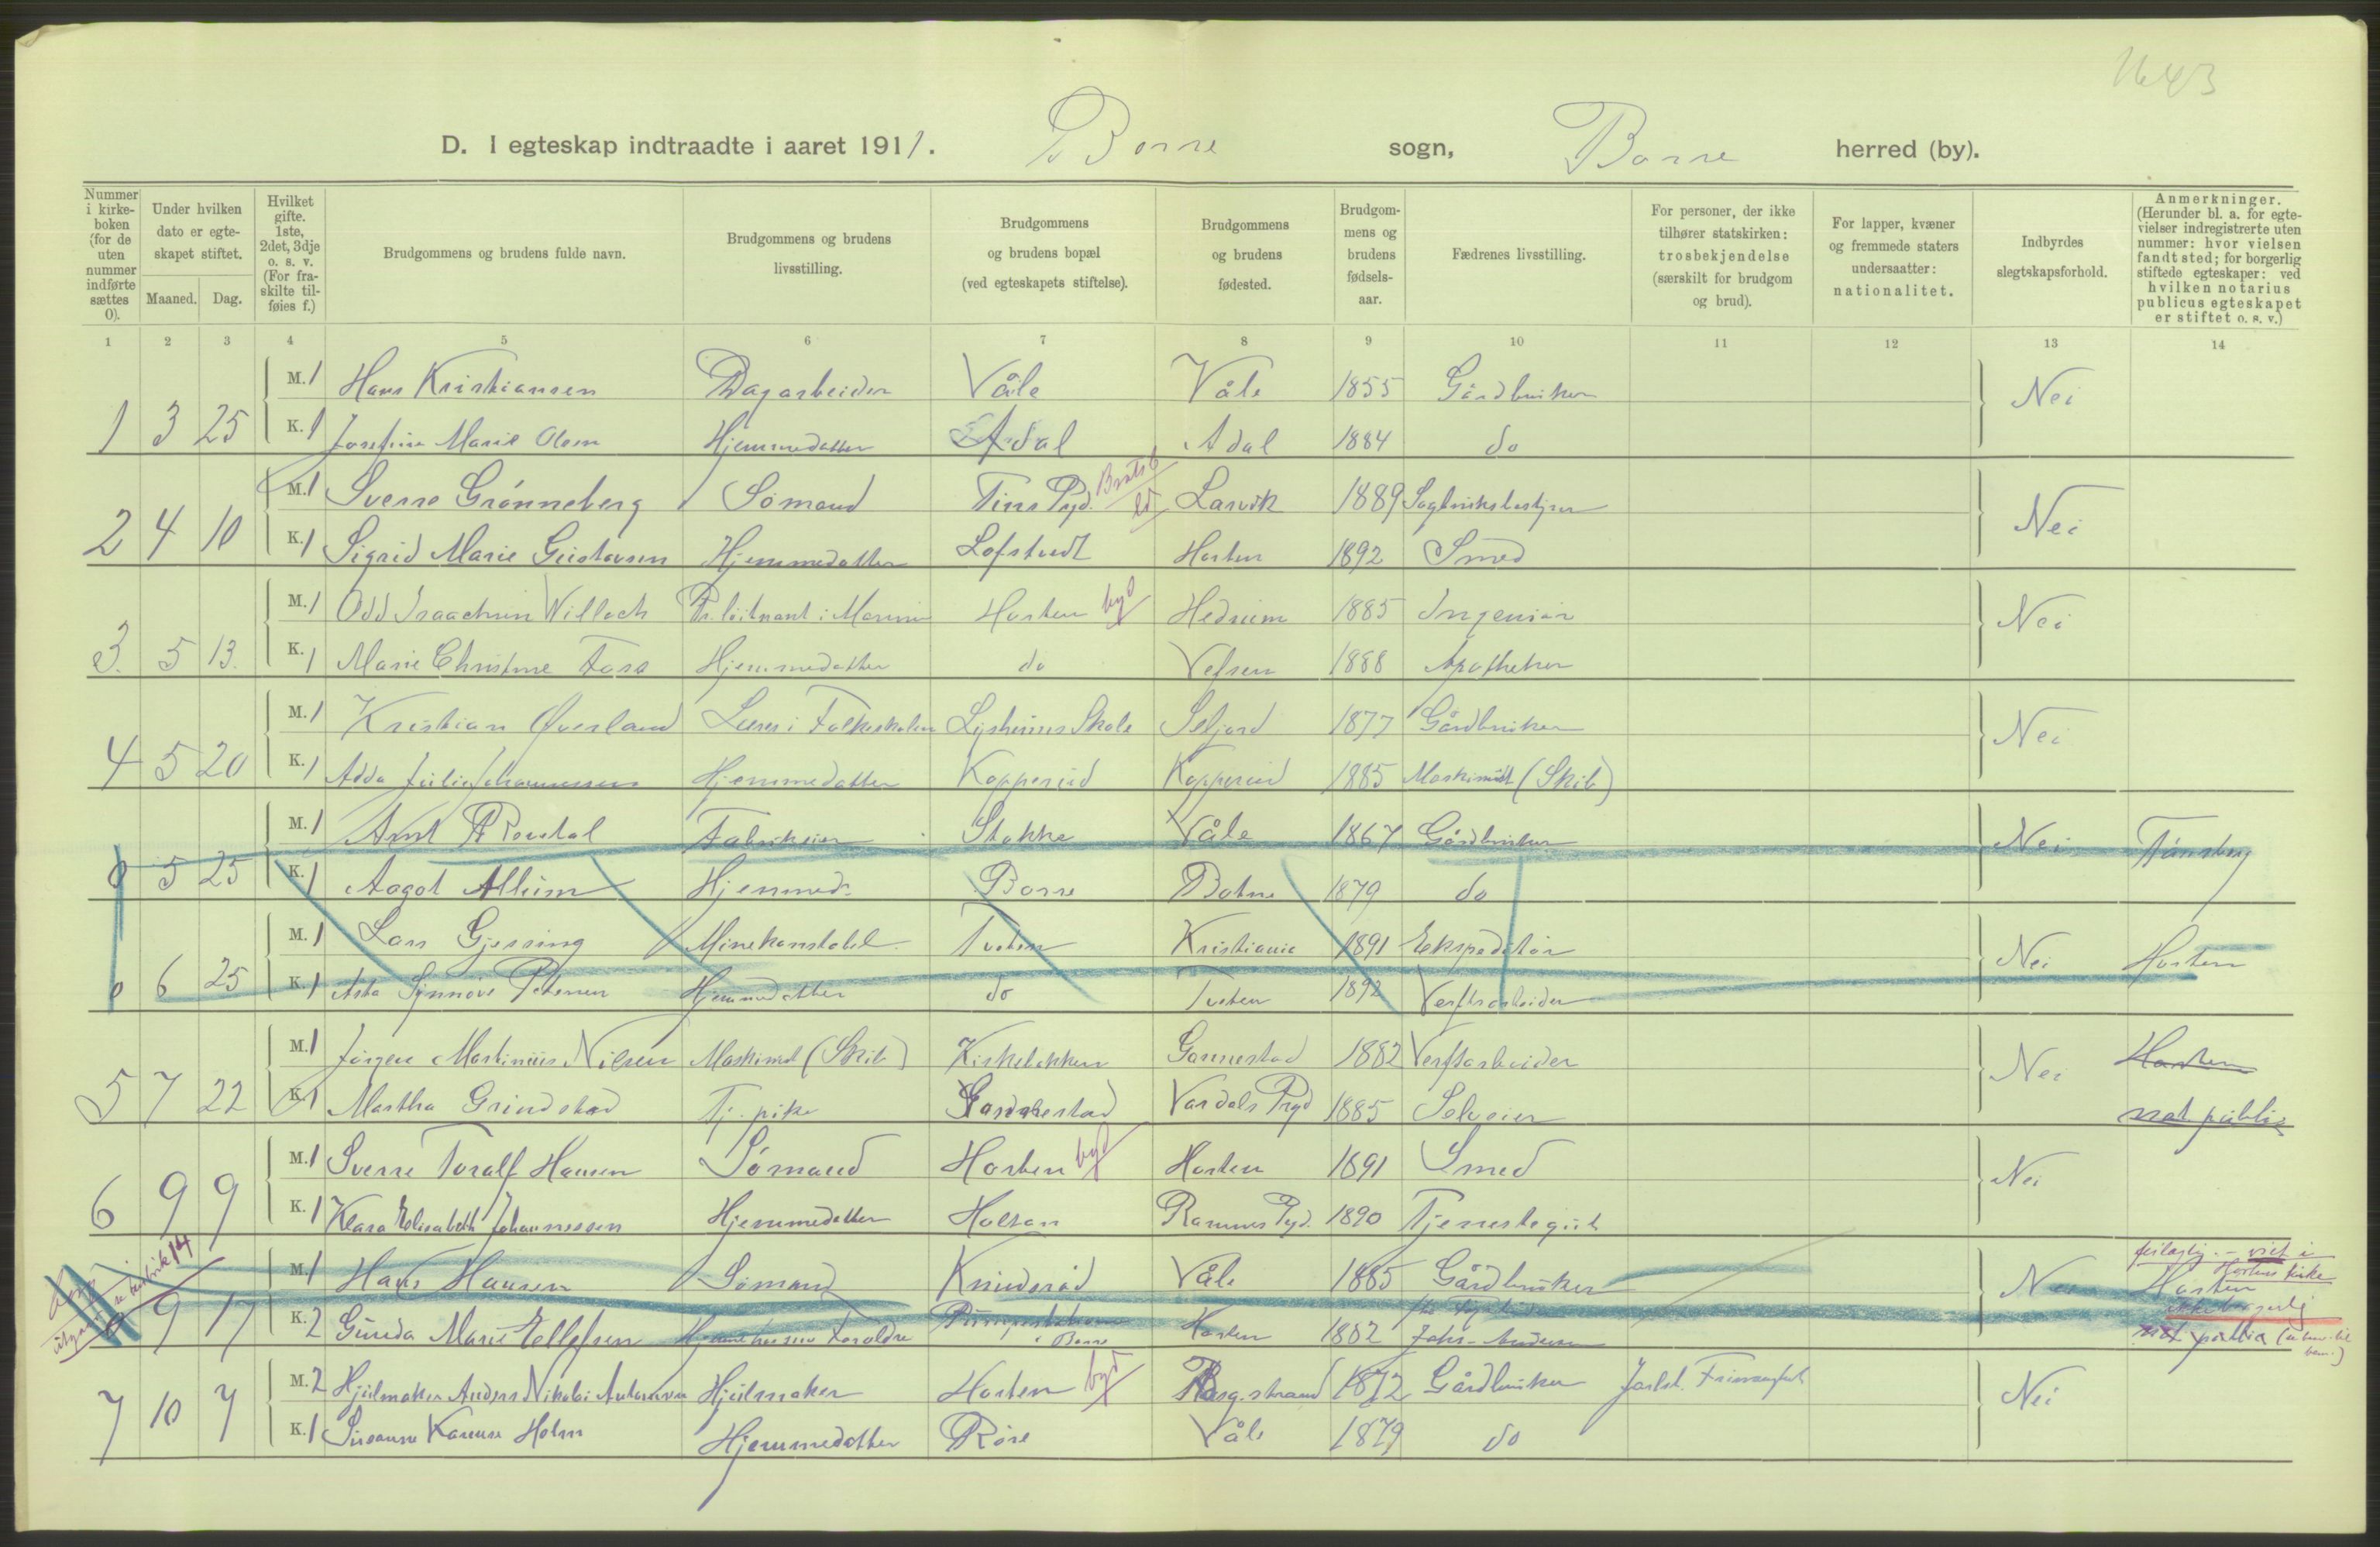 1643
D. I egteskap indtraadte i aaret 1911. Borre sogn, Borre herred (by).
Nummer i kirke-boken (for de uten nummer indførte sættes 0).
Under hvilken dato er egte-skapet stiftet.
Maaned. Dag.
Hvilket gifte. 1ste, 2det, 3dje o. s. v. (For fra-skilte til-føies f.)
Brudgommens og brudens fulde navn.
Brudgommens og brudens livsstilling.
Brudgommens og brudens bopæl (ved egteskapets stiftelse).
Brudgommens og brudens fødested.
Brudgom-mens og brudens fødsels-aar.
Fædrenes livsstilling.
For personer, der ikke tilhører statskirken: trosbekjendelse (særskilt for brudgom og brud).
For lapper, kvæner og fremmede staters undersaatter: nationalitet.
Indbyrdes slegtskapsforhold.
Anmerkninger. (Herunder bl. a. for egte-vielser indregistrerte uten nummer: hvor vielsen fandt sted; for borgerlig stiftede egteskaper: ved hvilken notarius publicus egteskapet er stiftet o. s. v.)
1 2 3 4 5 6 7 8 9 10 11 12 13 14
M. 1 Hans Kristiansen Dagarbeider Våle Våle 1855 Gårdbruker Nei
1 3 25 K. 1 Josefine Marie Olsen Hjemmedatter Adal Adal 1884 do
M. 1 Sverre Grønneberg Sømand Tins Pgd. Bratsb Larvik 1889 Sagbruksbestyrer Nei
2 4 10 K. 1 Sigrid Marie Gustavsen Hjemmedatter Lofstudt Horten 1892 Smed
M. 1 Odd Isaachsen Willoch Pr. løitnant i Marinen Horten byd Hedrum 1885 Ingeniør Nei
3. 5 13. K. 1 Marie Christine Fors Hjemmedatter do Vefsen 1888 Apotheker
M. 1 Kristian Øverland Lærer i Folkeskolen Lysheims Skole Seljord 1877 Gårdbruker Nei
4 5 20 K. 1 Adda Julie Johannessen Hjemmedatter Kopperud Kopperud 1885 Maskinist (Skib)
M. 1 Arnt Rørdal Fabrikeier Stokke Våle 1867 Gårdbruker Nei Tønsberg
0 5 25 K. 1 Aagot Allum Hjemmed. Borre Botne 1879 do
M. 1 Lars Gjessing Minekonstabel Tveten Kristiania 1891 Ekspeditør Nei Horten
0 6 25 K. 1 Asta Synnøve Petersen Hjemmedatter do Tveten 1892 Verftsarbeider
M. 1 Jørgen Martinius Nilsen Maskinist (Skib) Kirkebakken Gannestad 1882 Verftsarbeider Nei Horten
5 7 22 K. 1 Martha Grindstad Tj. pike Gannestad Vardals Pgd 1885 Selveier not publis
M. 1 Sverre Toralf Hansen Sømand Horten byd Horten 1891 Smed Nei
6 9 9 K. 1 Klara Elisabeth Johannessen Hjemmedatter Holtan Ramnes Pgd. 1890 Tjenestegut
M. 1 Hans Hansen Sømand Knudsrød Våle 1885 Gårdbruker Nei Horten
feilagtig. – viet i Hortens kirke
0 9 17 K. 2 Gunda Marie Ellefsen Hjemme hos sine Foreldre Pumpestationen i Borre Horten 1882 Johs. Andersen
ikke borgerlig
not publis
M. 2 Hjulmaker Anders Nikolai Antonsen Hjulmaker Horten byd Åsg.strand 1872 Gårdbruker Jarlsb. Frimenighet Nei
7 10 7 K. 1 Susanne Karense Holm Hjemmedatter Røre Våle 1879 do